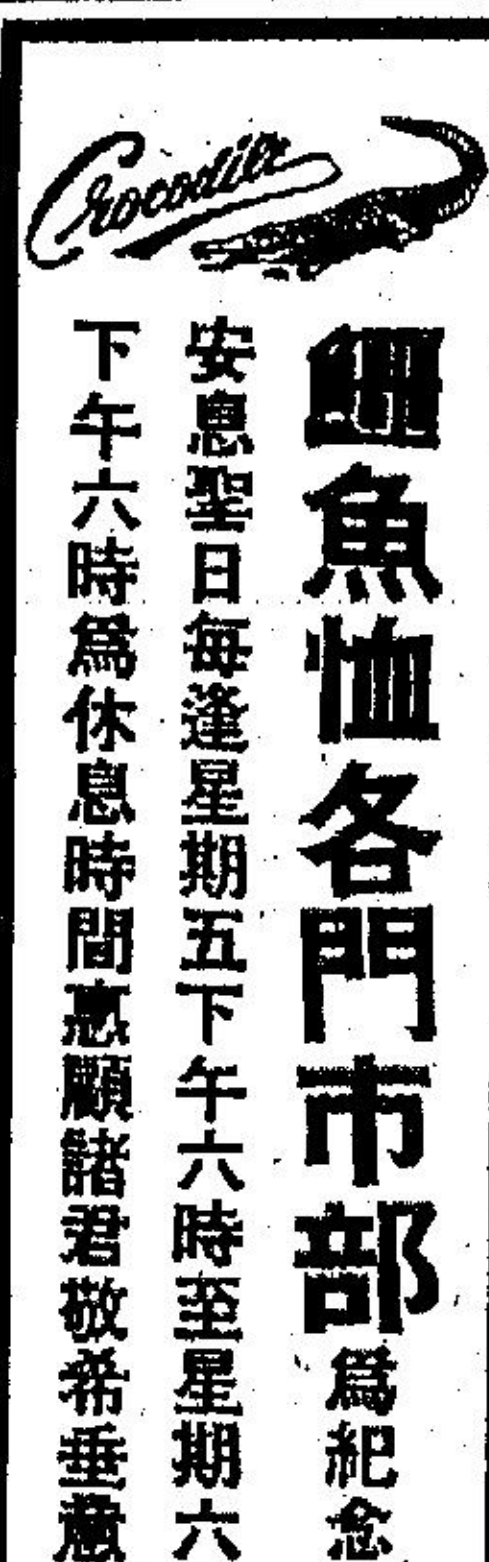 Crocodile
鱷魚恤各門市部為紀念
安息聖日每逢星期五下午六時至星期六
下午六時為休息時間惠顧諸君敬希垂意